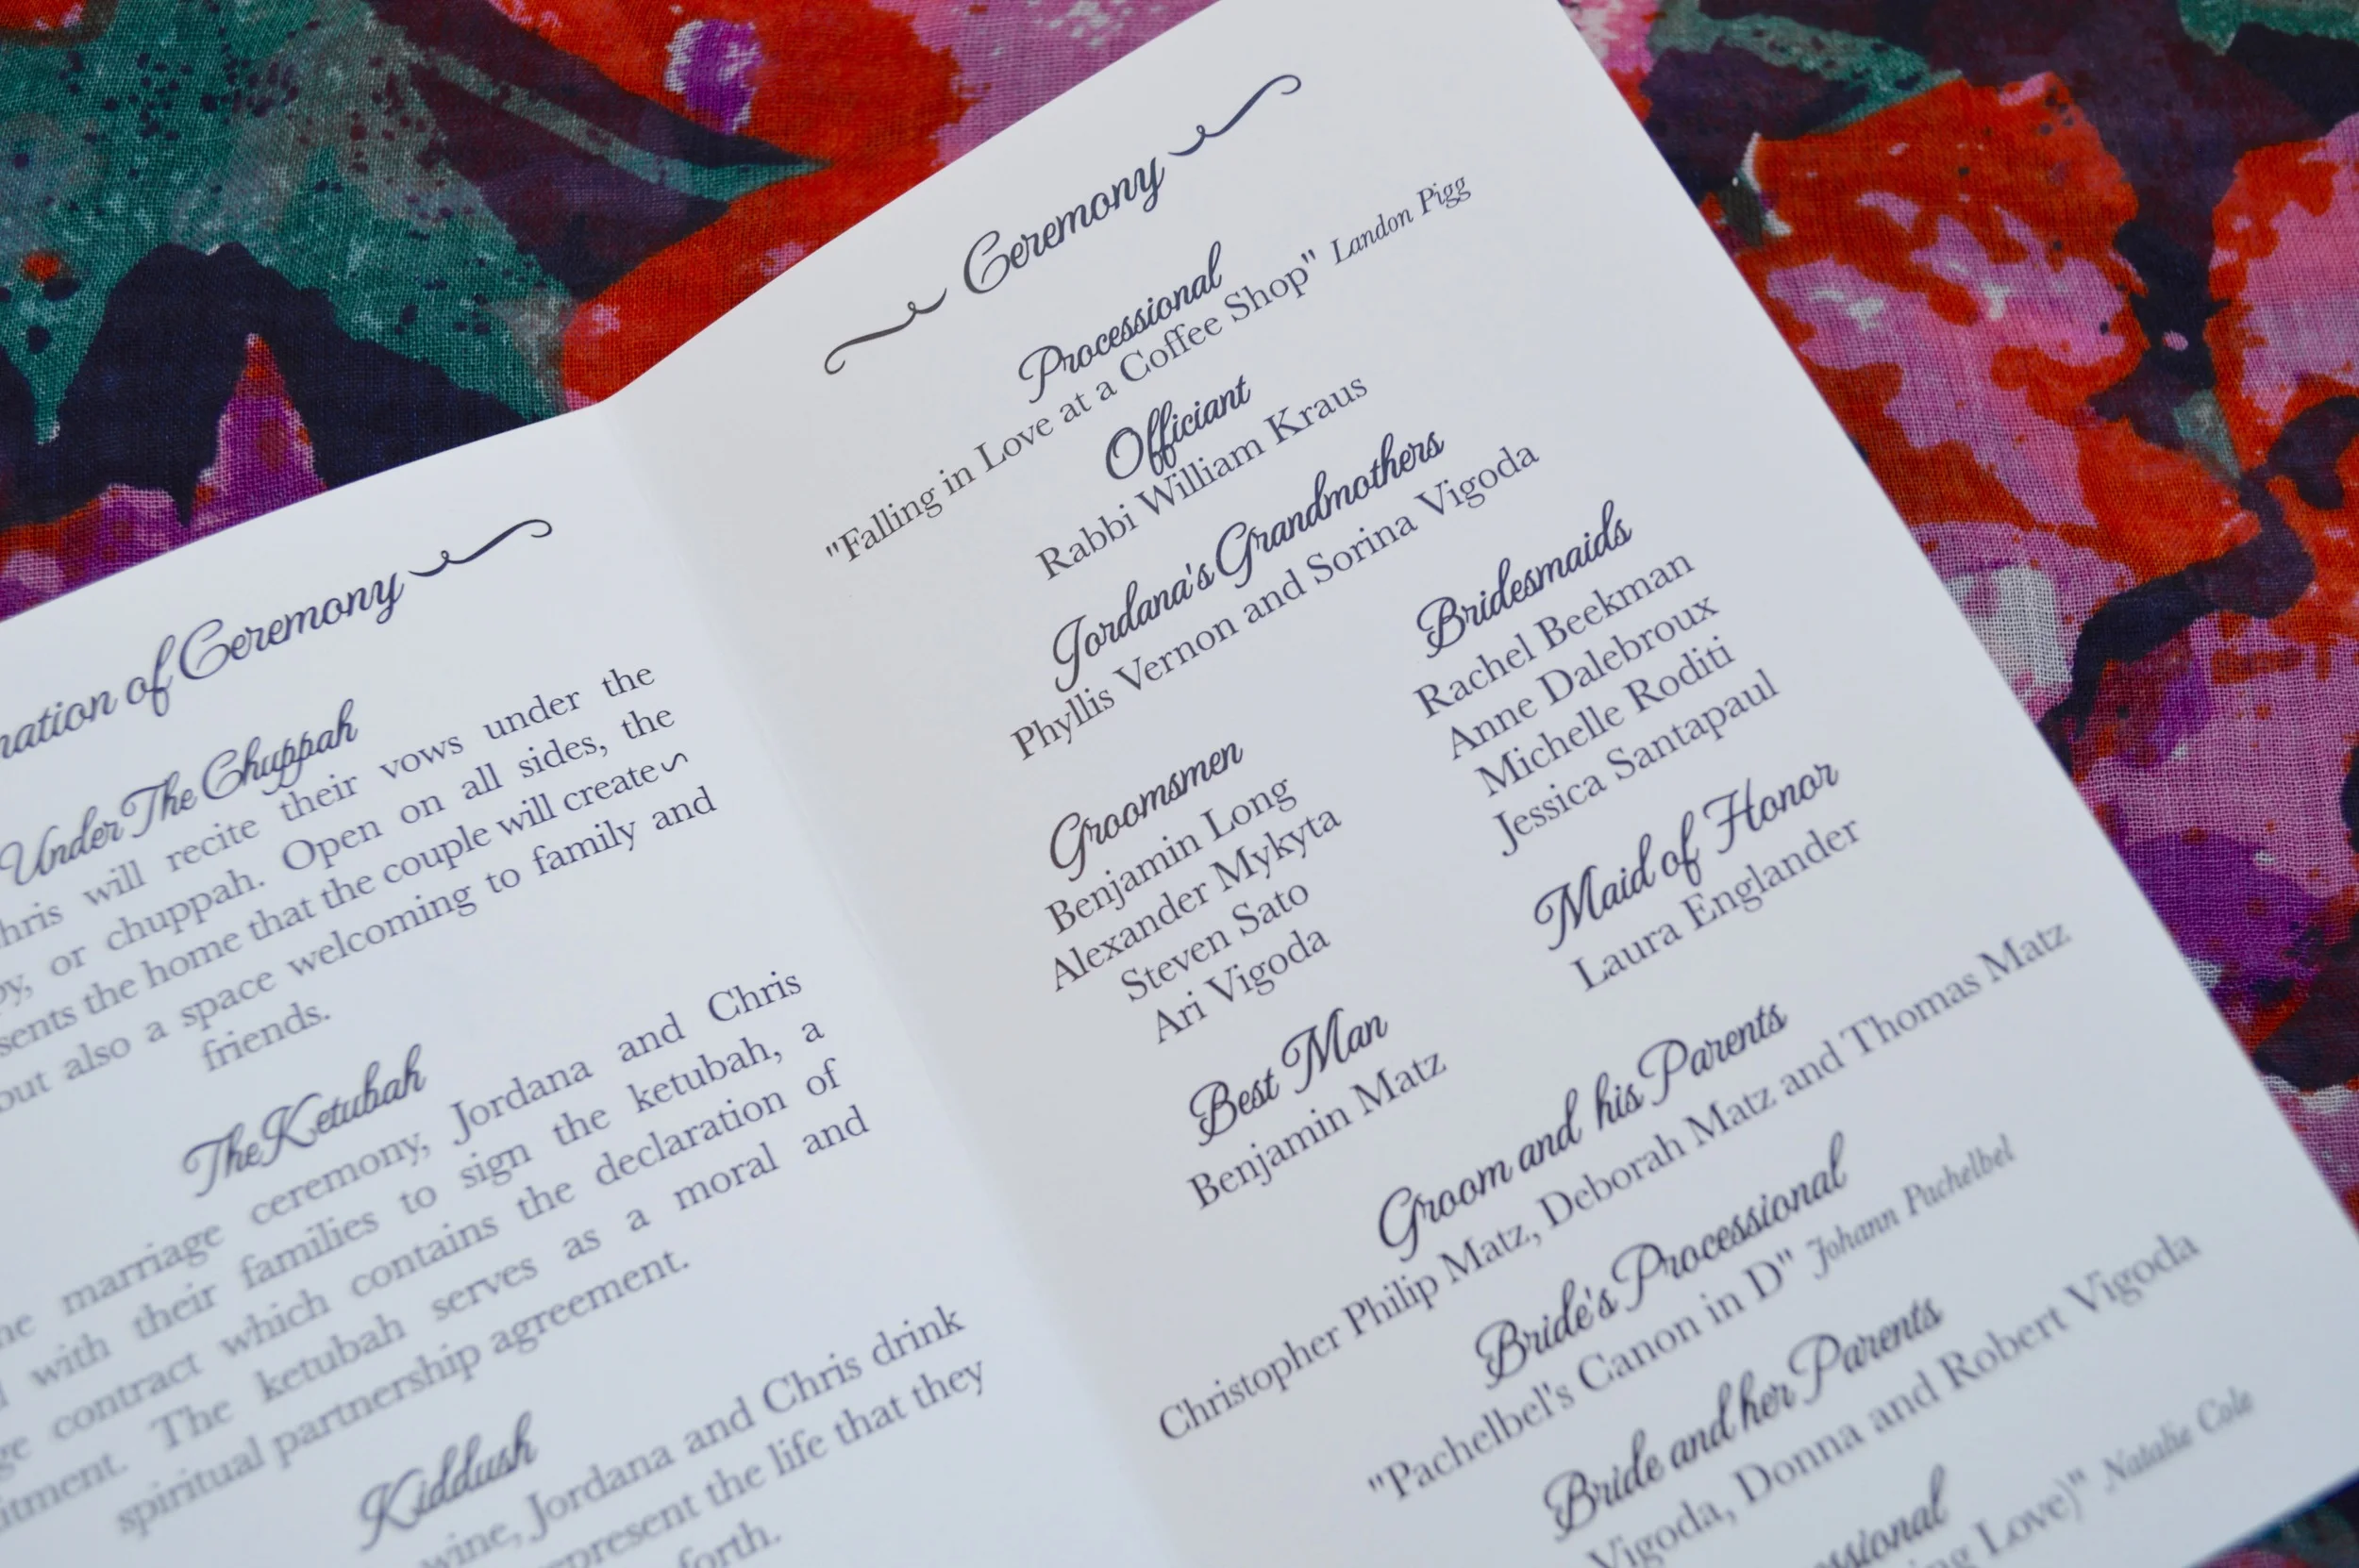 nation of Ceremony
Under The Chuppah
hris will recite their vows under the
py, or chuppah. Open on all sides, the
sents the home that the couple will create
but also a space welcoming to family and
friends.
The Ketubah
marriage ceremony, Jordana and Chris
with their families to sign the ketubah, a
ge contract which contains the declaration of
itment. The ketubah serves as a moral and
spiritual partnership agreement.
Kiddush
wine, Jordana and Chris drink
epresent the life that they
forth.
Ceremony
Processional
"Falling in Love at a Coffee Shop" Landon Pigg
Officiant
Rabbi William Kraus
Jordana's Grandmothers
Phyllis Vernon and Sorina Vigoda
Groomsmen
Benjamin Long
Alexander Mykyta
Steven Sato
Ari Vigoda
Best Man
Benjamin Matz
Bridesmaids
Rachel Beekman
Anne Dalebroux
Michelle Roditi
Jessica Santapaul
Maid of Honor
Laura Englander
Groom and his Parents
Christopher Philip Matz, Deborah Matz and Thomas Matz
Bride's Processional
"Pachelbel's Canon in D" Johann Pachelbel
Bride and her Parents
Vigoda, Donna and Robert Vigoda
essional
ng Love)" Natalie Cole